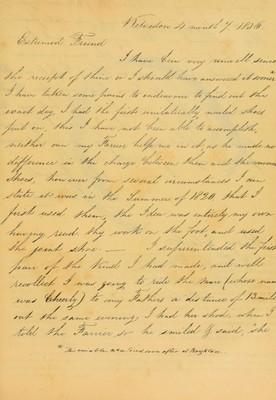 4 month 7 1836
Esteemed Friend
I have been very unwell since
the receipt of thine or I should have answered it sooner
I have taken some pains to endeavour to find out the
exact day I had the first unilaterally nailed shoes
put on, this I have not been able to accomplish,
neither can my Farrier help me in it, as he made no
difference in the charge between them and the common
Shoes, however from several circumstances I can
state it was in the Summer of 1820 that I
first used them, the Idea was entirely my own
having read thy work on the foot, and used
the joint shoe. — I superintended the first
pair of the kind I had made, and well
recollect I was going to ride the Mare (whose name
was Cherty) to my Fathers a distance of 13 miles
out the same evening I had her shod, when I
told the Farrier so he smiled & said, "she